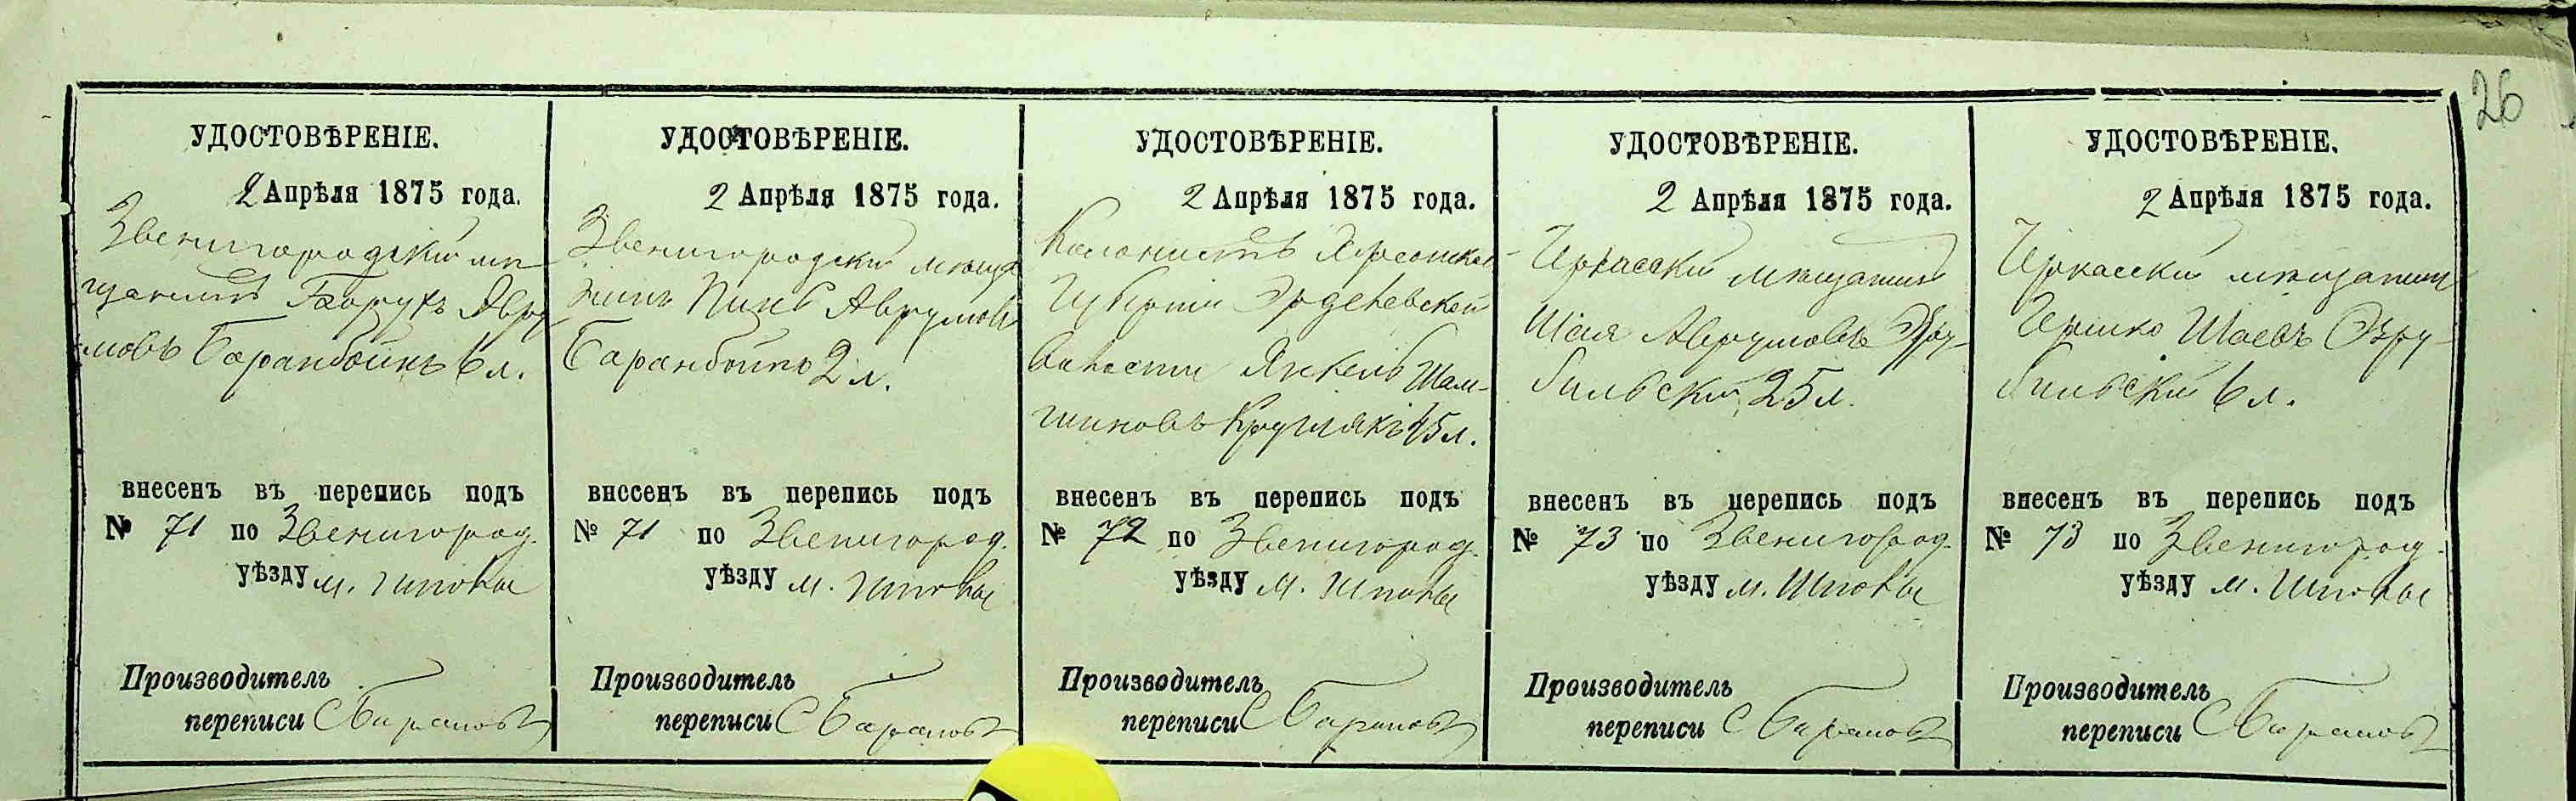 26
УДОСТОВѢРЕНІЕ.
2 Апрѣля 1875 года.
Звенигородскій мѣ
щанинъ Борухъ Авру
мовъ Баранбойнъ 6 л.
внесенъ въ перепись подъ
№ 71 по Звенигород.
уѣзду м. Шполы
Производитель
переписи С Барановъ
УДОСТОВѢРЕНІЕ.
2 Апрѣля 1875 года.
Звенигородскій мѣща
нинъ Аврумовъ
Баранбойнъ 2 л.
внесенъ въ перепись подъ
№ 71 по Звенигород.
уѣзду м. Шполы
Производитель
переписи С Барановъ
УДОСТОВѢРЕНІЕ.
2 Апрѣля 1875 года.
Колонистъ Херсонской
Губерніи
Волости Янкель Шам-
шиновъ Круглякъ 45 л.
внесенъ въ перепись подъ
№ 72 по Звенигород.
уѣзду м. Шполы
Производитель
переписи С Барановъ
УДОСТОВѢРЕНІЕ.
2 Апрѣля 1875 года.
Черкасскій мѣщанинъ
Шая Аврумовъ Эзру-
бильскій 25 л.
внесенъ въ перепись подъ
№ 73 по Звенигород.
уѣзду м. Шполы
Производитель
переписи С Барановъ
УДОСТОВѢРЕНІЕ.
2 Апрѣля 1875 года.
Черкасскій мѣщанинъ
Гершко Шаевъ Эзру-
бильскій 6 л.
внесенъ въ перепись подъ
№ 73 по Звенигород.
уѣзду м. Шполы
Производитель
переписи С Барановъ